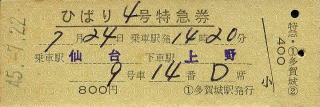 45.-7.22
ひばり4号特急券
7月24日 乗車駅発14時20分
乗車駅 仙台 下車駅 上野
9号車 14番 D席
800円 ①多賀城駅発行
特急・①多賀城②
400
小